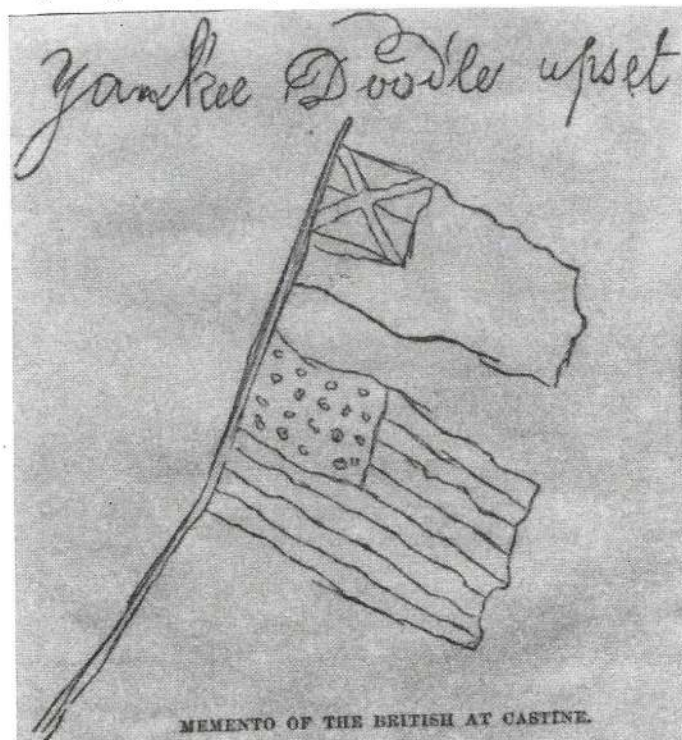 Yankee Doodle upset
MEMENTO OF THE BRITISH AT CASTINE.